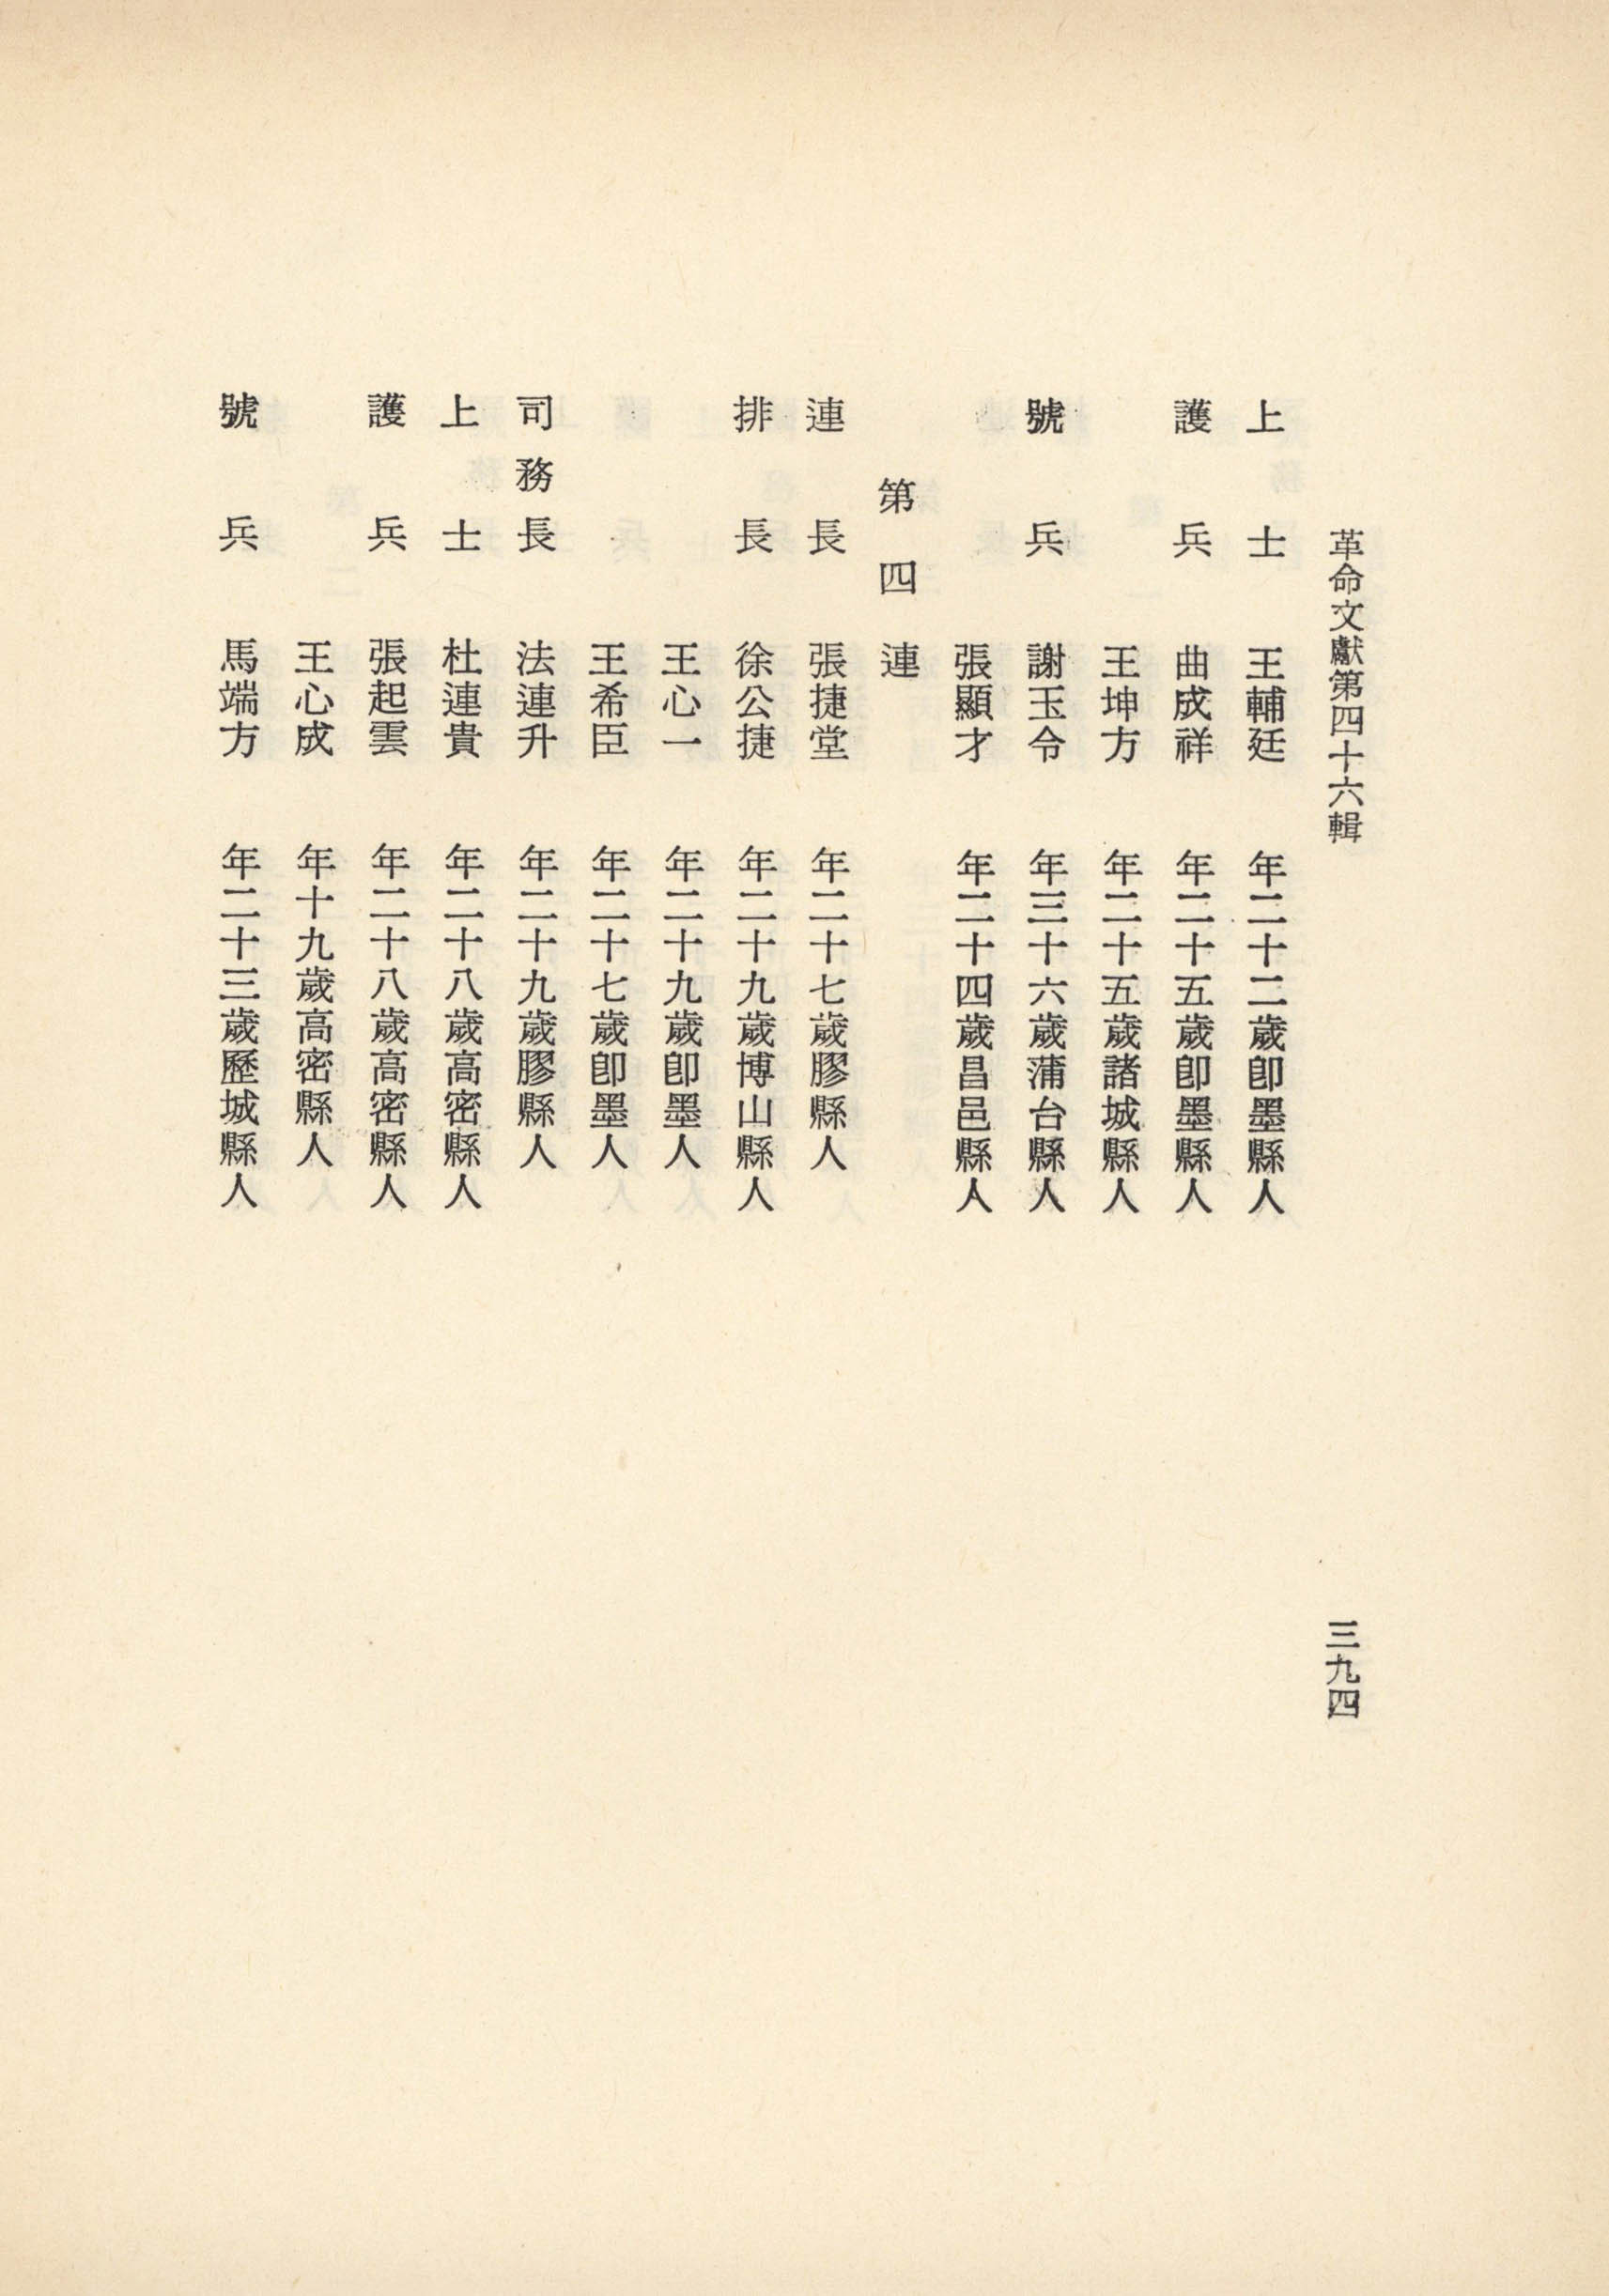 革命文獻第四十六輯
三九四
上士 王輔廷 年二十二歲卽墨縣人
護兵 曲成祥 年二十五歲卽墨縣人
王坤方 年二十五歲諸城縣人
號兵 謝玉令 年三十六歲蒲台縣人
張顯才 年二十四歲昌邑縣人
第四連
連長 張捷堂 年二十七歲膠縣人
排長 徐公捷 年二十九歲博山縣人
王心一 年二十九歲卽墨人
王希臣 年二十七歲卽墨人
司務長 法連升 年二十九歲膠縣人
上士 杜連貴 年二十八歲高密縣人
護兵 張起雲 年二十八歲高密縣人
王心成 年十九歲高密縣人
號兵 馬端方 年二十三歲歷城縣人